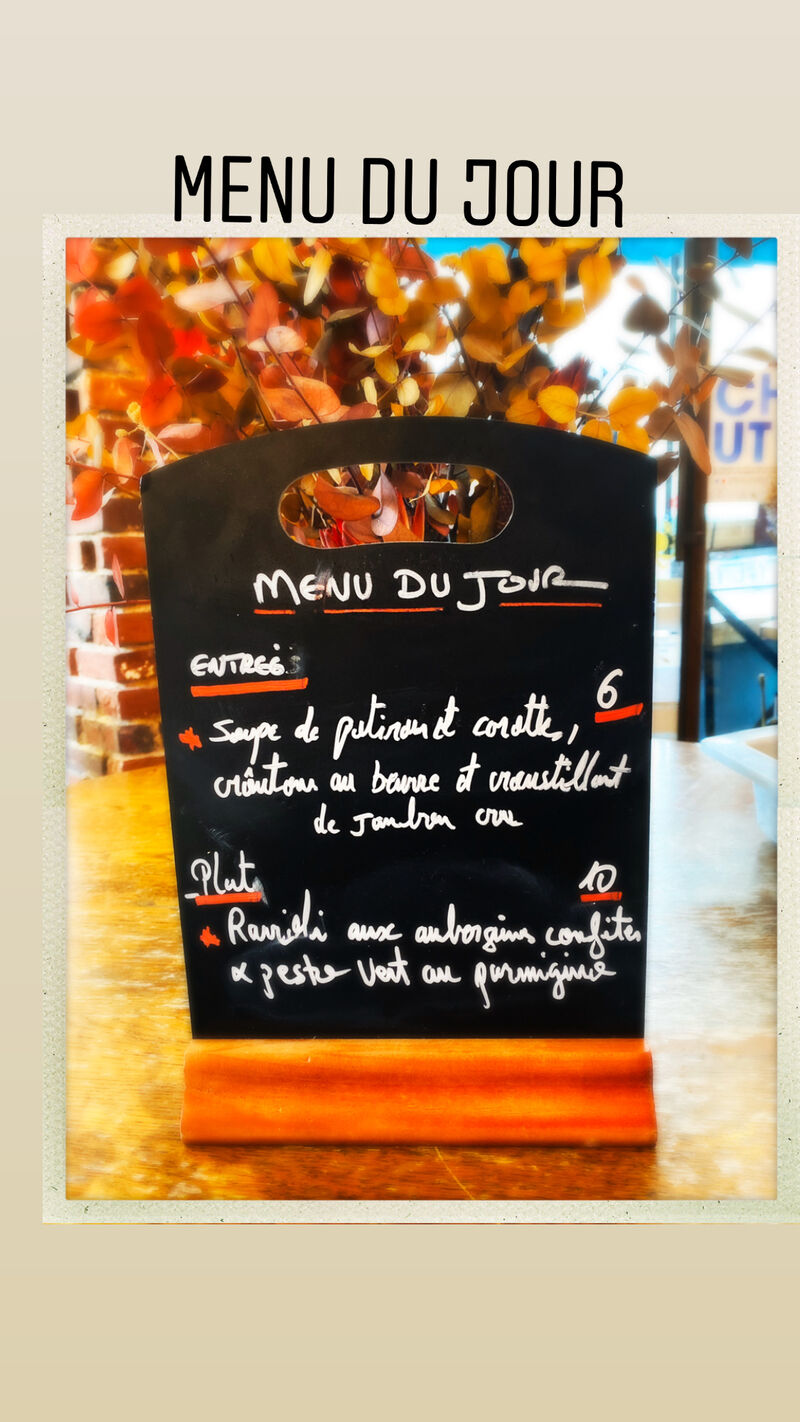 MENU DU JOUR
CH
UT
MENU DU JOUR
ENTREÉ
6
Soupe de potiron et carottes,
croûtons au beurre et croustillant
de Jambon cru
Plat
10
Ravioli aux aubergines confites
& pesto Vert au parmigiano